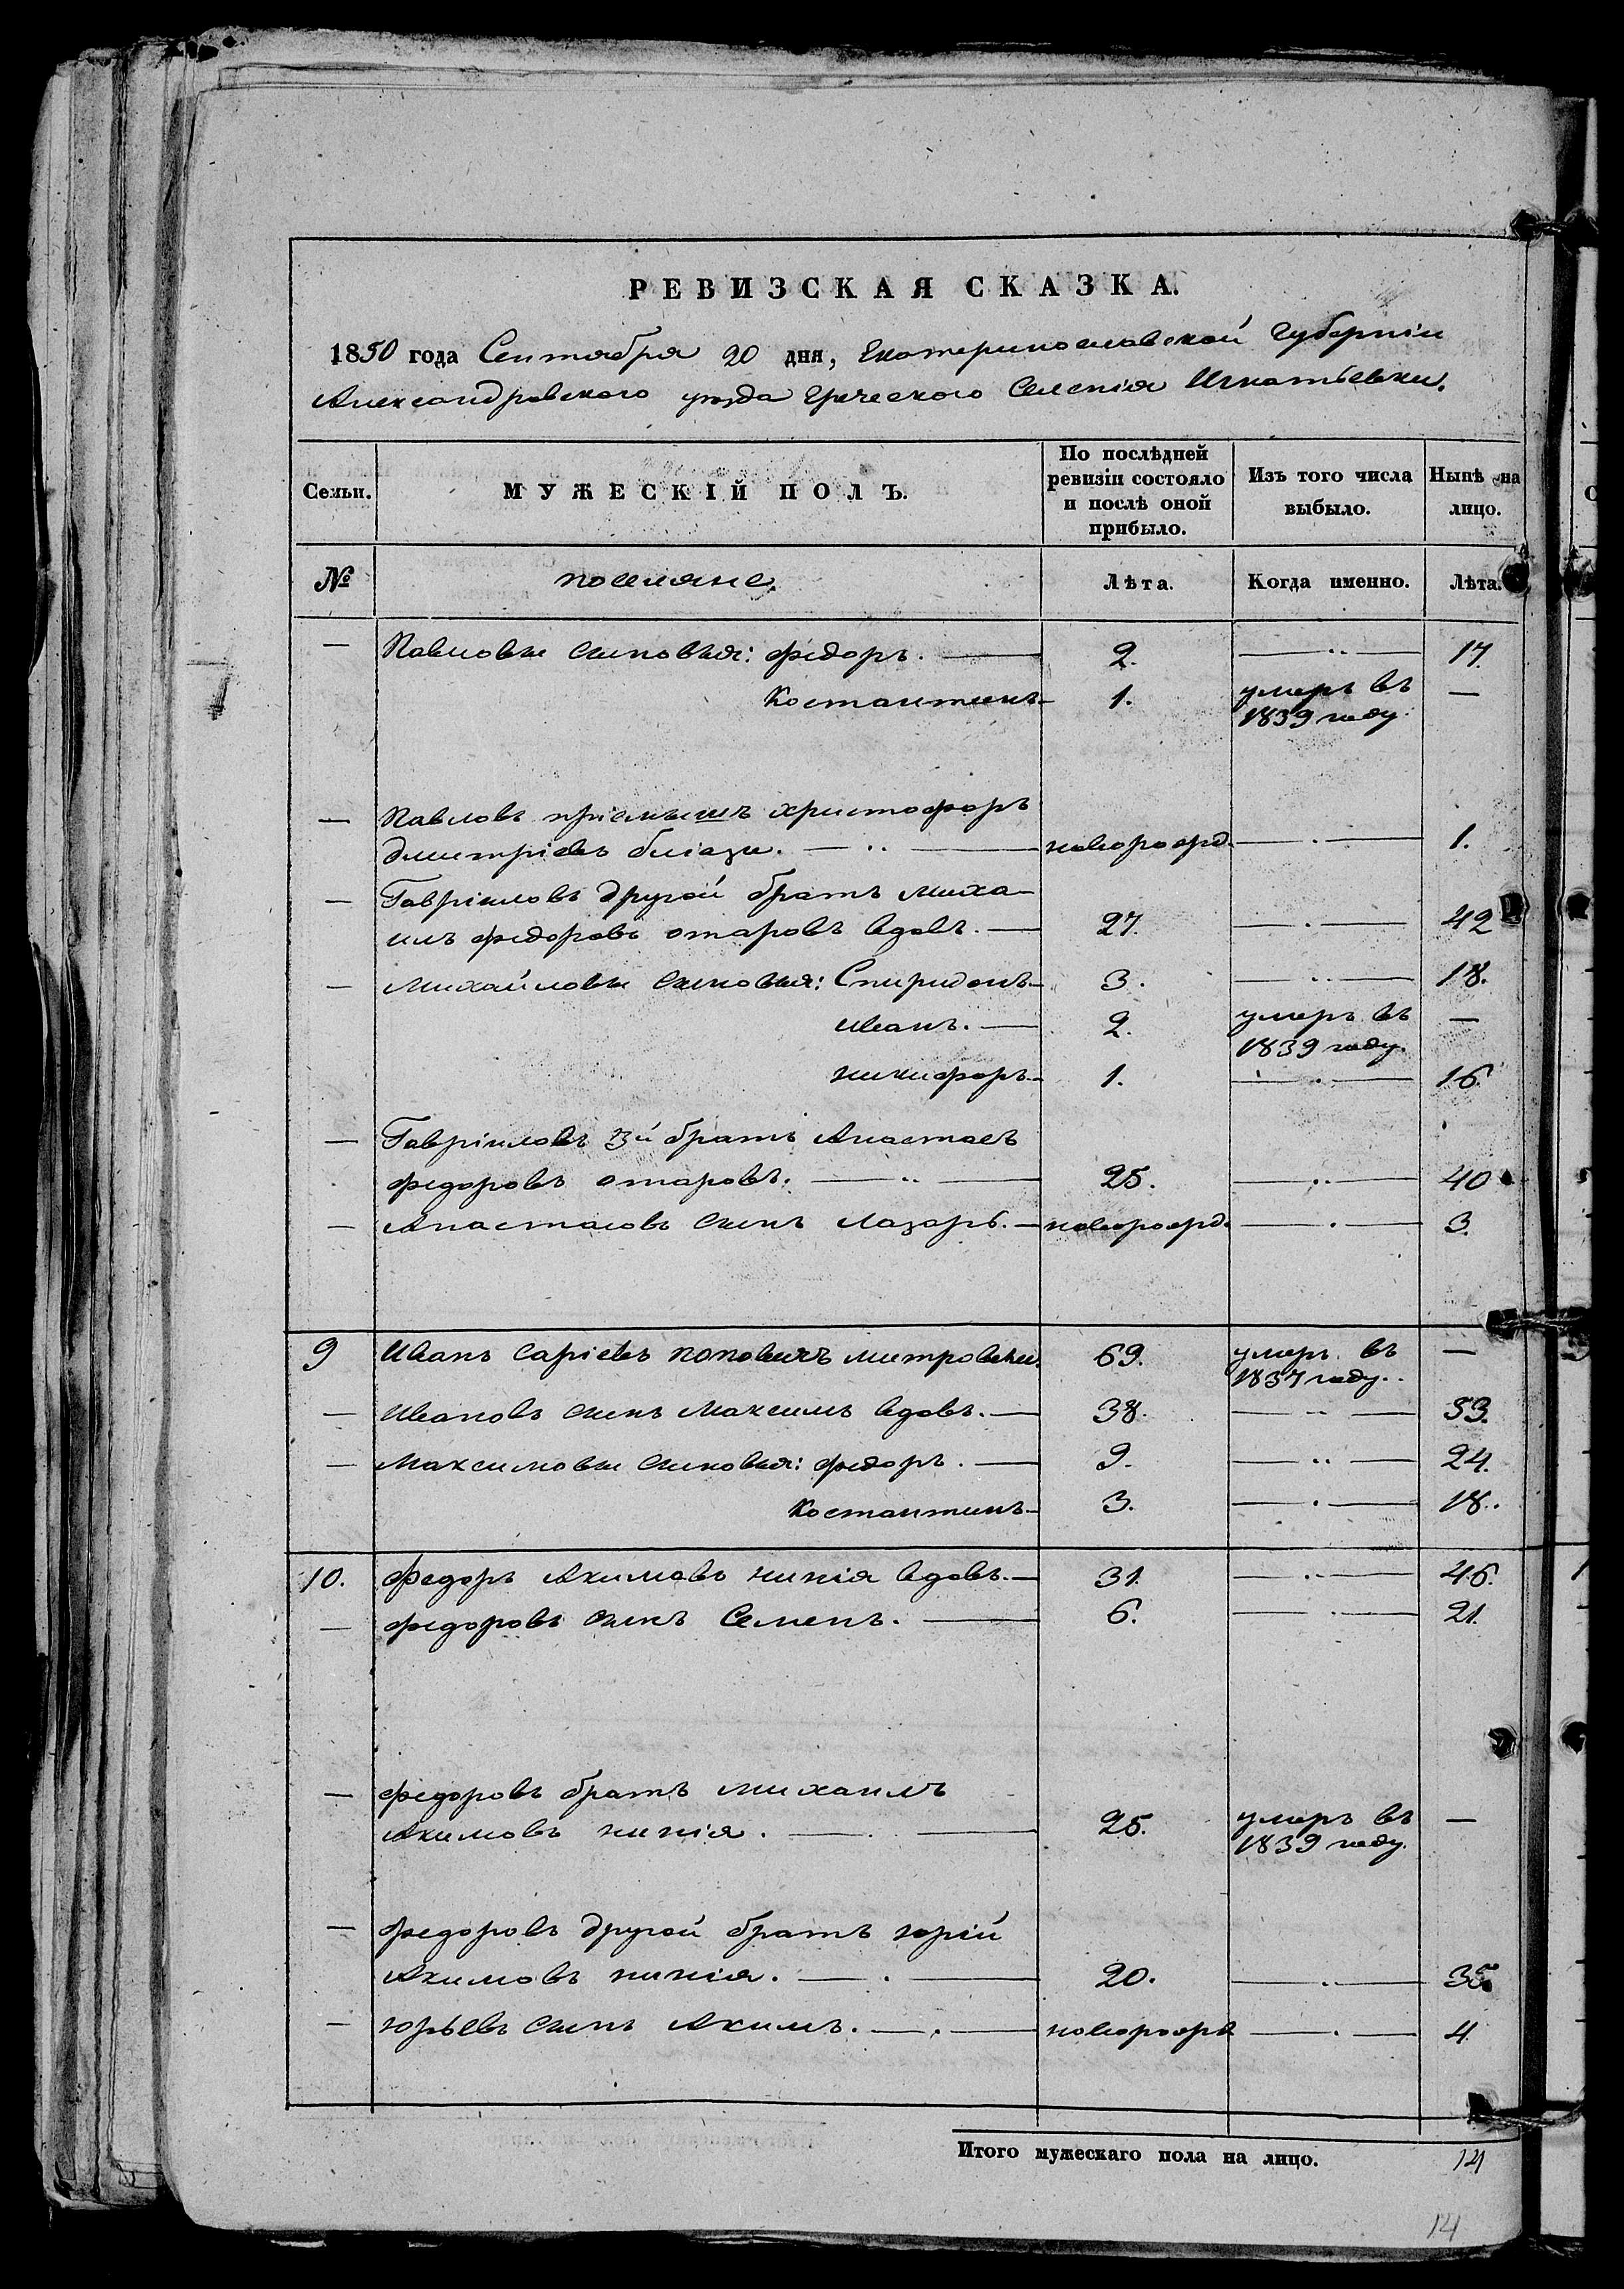 РЕВИЗСКАЯ СКАЗКА.
1850 года Сентября 20 дня, Екатеринославской Губерніи
Александровского уезда Греческого Селенія Игнатьевки.
Семьи. МУЖЕСКІЙ ПОЛЪ. По послѣдней ревизіи состояло и послѣ оной прибыло. Изъ того числа выбыло. Нынѣ на лицо.
№ поселяне. Лѣта. Когда именно. Лѣта.
— Павловы сыновья: Федоръ. — 2. — 17.
Костантинъ — 1. умеръ въ 1839 году —
— Павловъ пріемышъ Христофоръ
Дмитріевъ . — новорожд. — 1.
— Гавріиловъ другой братъ Миха-
илъ Федоровъ Отаровъ вдовъ. — 27. — 42
— Михайловы сыновья: Спиридонъ — 3. — 18.
Иванъ. — 2. умеръ въ 1839 году. —
Никифоръ — 1. — 16.
— Гавріиловъ 3й братъ Анастасъ
Федоровъ Отаровъ. — 25. — 40
— Анастасовъ сынъ Лазарь. — новорожд. — 3.
9 Иванъ Саріевъ Поповичъ . 69. умеръ въ 1837 году. —
— Ивановъ сынъ Максимъ вдовъ. — 38. — 53.
— Максимовы сыновья: Федоръ. — 9. — 24.
Костантинъ — 3. — 18.
10. Федоръ Акимовъ вдовъ. — 31. — 46.
— Федоровъ сынъ Семенъ. — 6. — 21.
— Федоровъ братъ Михаилъ
Акимовъ . — 25. умеръ въ 1839 году. —
— Федоровъ другой братъ Юрій
Акимовъ . — 20. — 35.
— Юрьевъ сынъ Акимъ. — новорожд — 4
Итого мужескаго пола на лицо. 14
14